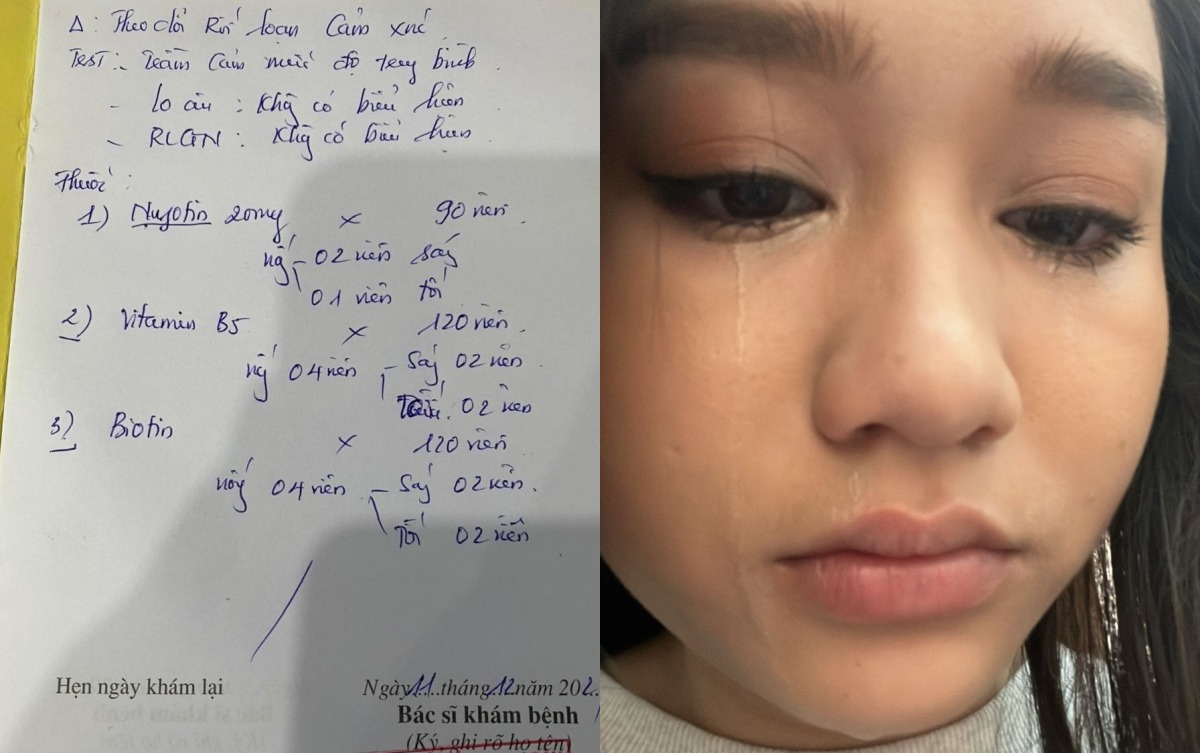 Δ: Theo dõi Rối loạn Cảm xúc
Test: Trầm Cảm mức độ trung bình.
- lo âu: Khg có biểu hiện
- RLGN: Khg có biểu hiện.
Thuốc:
1) Nuyotin 20mg x 90 viên.
ng - 02 viên sáng
01 viên tối
2) Vitamin B5 x 120 viên.
04 viên - Sáng 02 viên.
Tối. 02 viên
3) Biotin x 120 viên
uống 04 viên - Sáng 02 viên.
Tối 02 viên
Hẹn ngày khám lại
Ngày 11 tháng 12 năm 202
Bác sĩ khám bệnh
(Ký, ghi rõ họ tên)